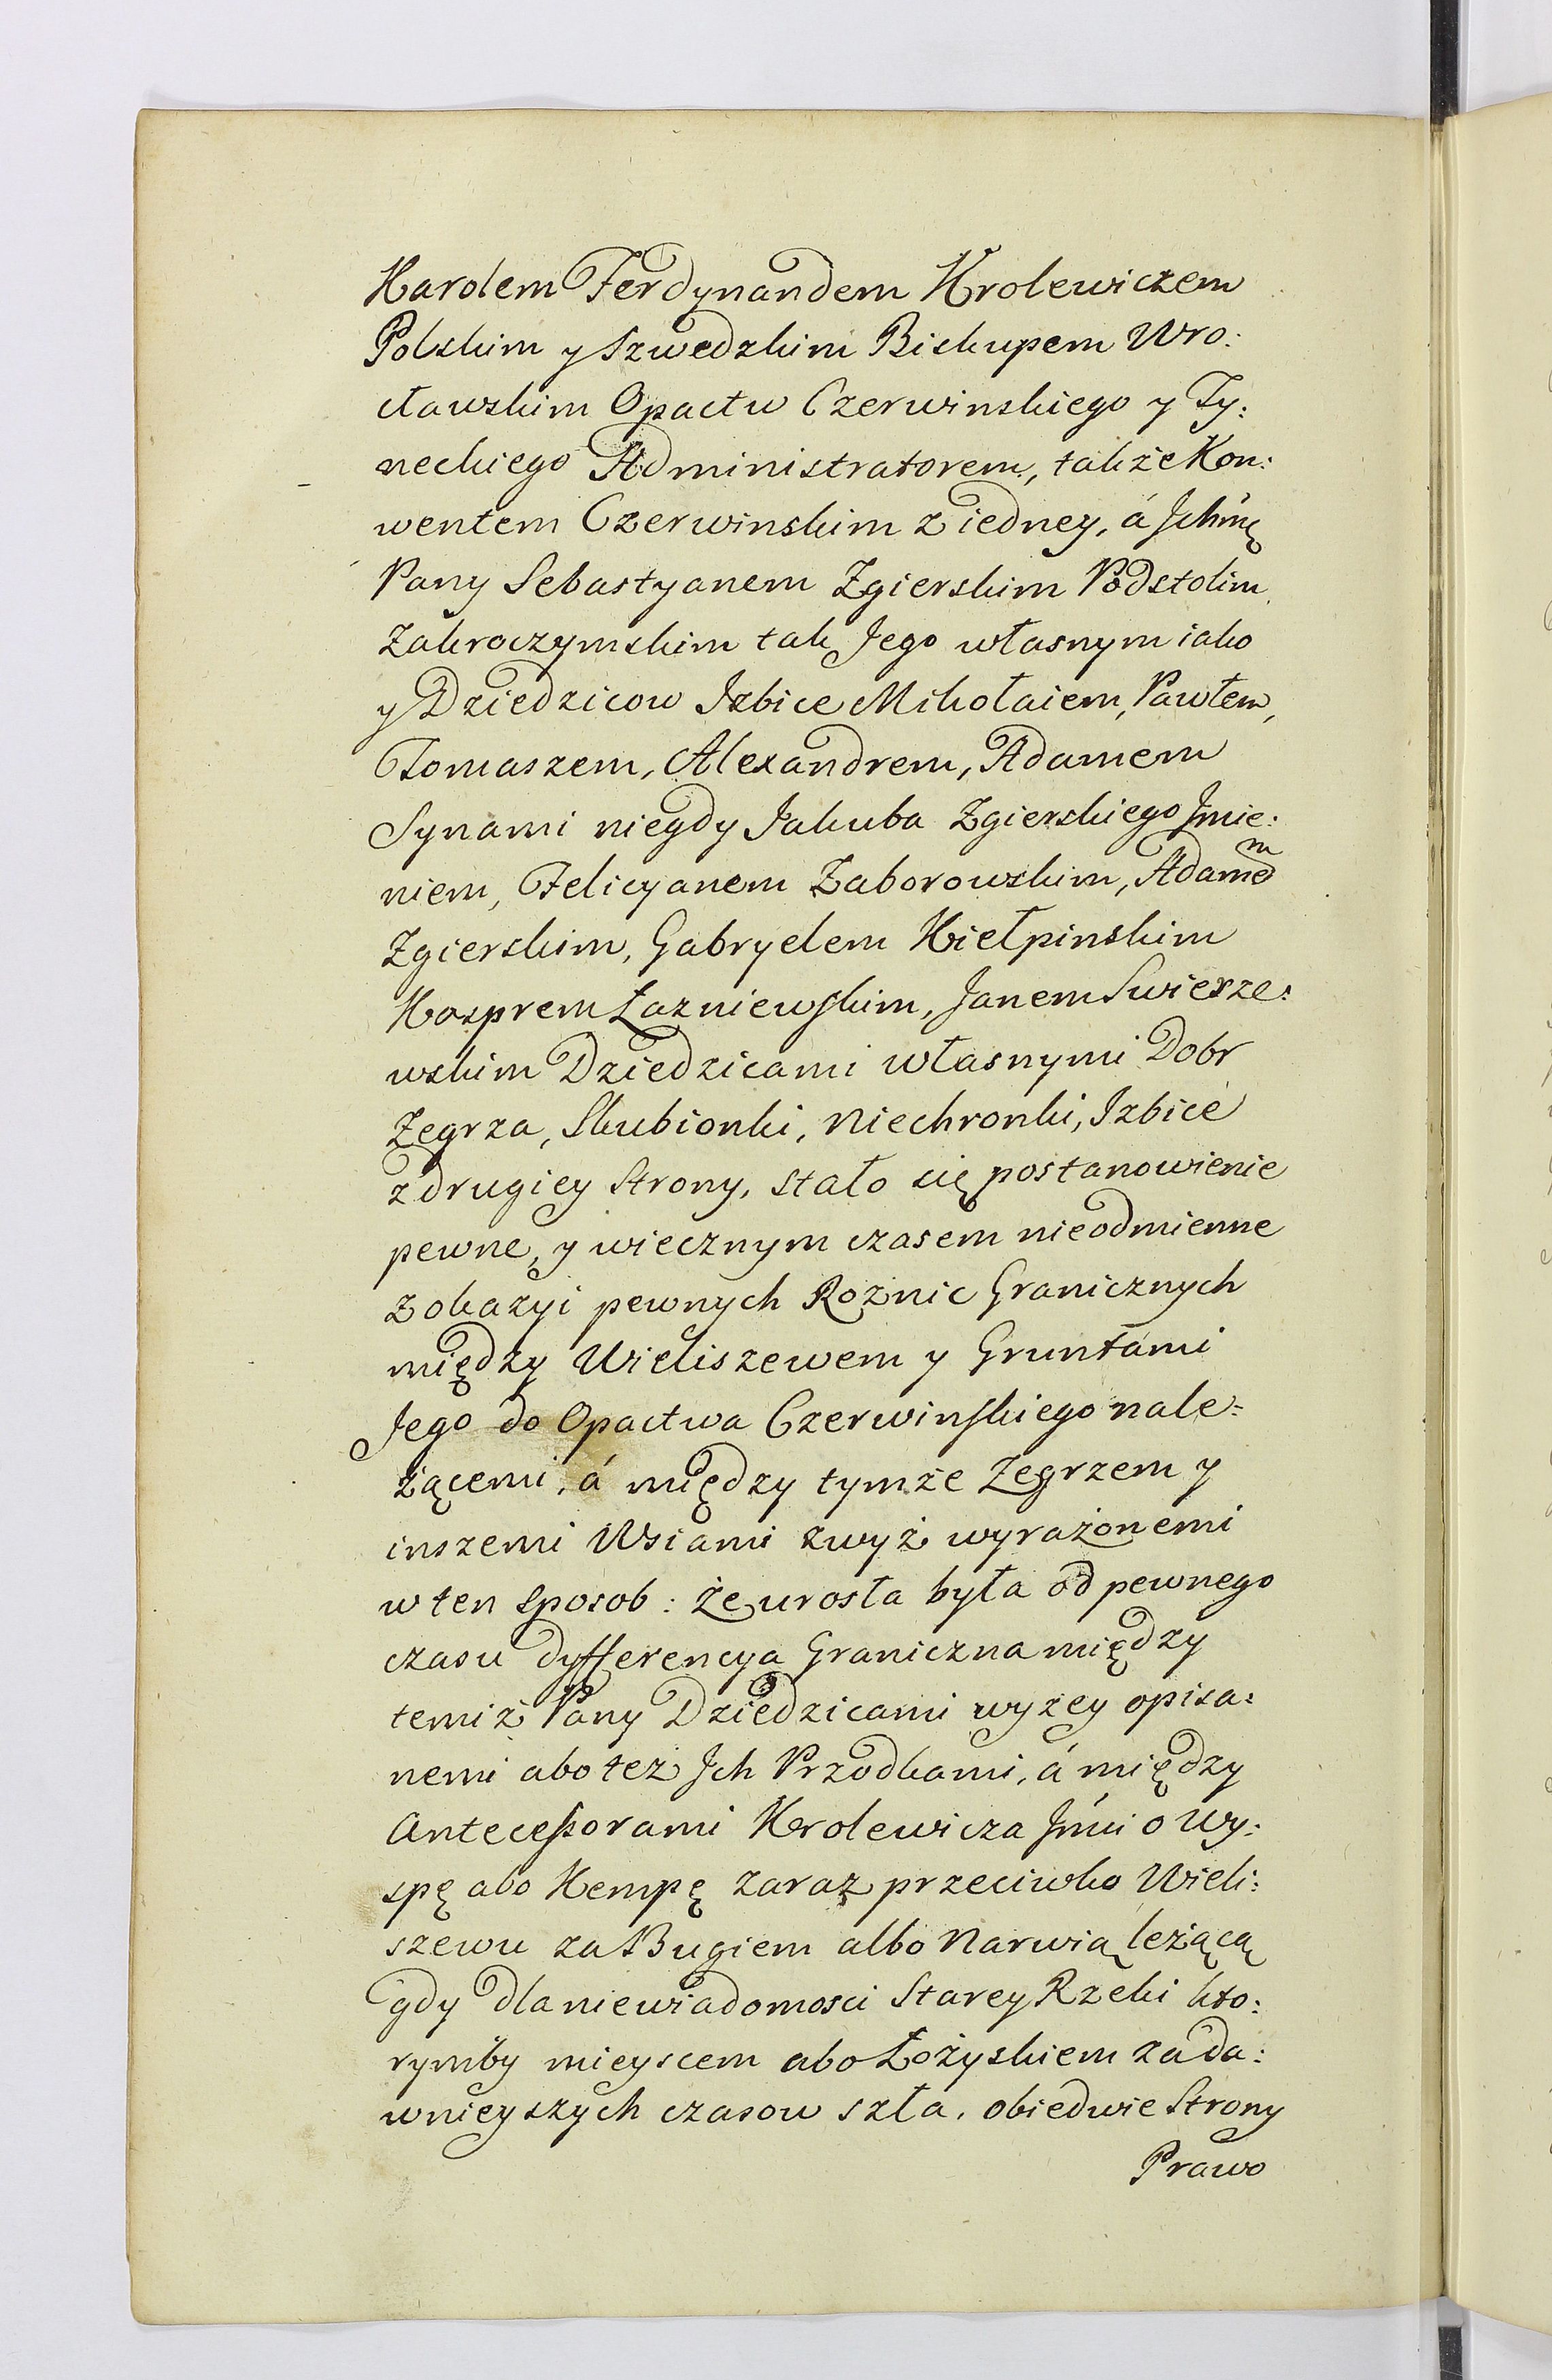 Karolem Ferdynandem Krolewiczem
Polskim y Szwedzkim Biskupem Wro:
cławskim Opactw Czerwinskiego y Ty:
neckiego Administratorem, także Kon:
wentem Czerwinskim z iedney, á Ichmę
Pany Sebastyanem Zgierskim Podstolim
Zakroczymskim tak Jego własnym iako
y Dziedzicow Izbice Mikołaiem, Pawłem,
Tomaszem, Alexandrem, Adamem
Synami niegdy Jakuba Zgierskiego Jmie:
niem, Felicyanem Zaborowskim, Adamem
Zgierskim, Gabryelem Kiełpinskim
Kasprem Łazniewskim, Janem Swiesze:
wskim Dziedzicami własnymi Dobr
Zegrza, Skubionki, Niechronki, Izbice
z drugiey Strony, stało się postanowienie
pewne, y wiecznym czasem nieodmienne
z okazyi pewnych Rożnic Granicznych
między Wieliszewem y Gruntámi
Jego do Opactwa Czerwinskiego nale:
żącemi, á między tymże Zegrzem y
inszemi Wsiami zwyż wyrażonemi
w ten sposob: że urosła była od pewnego
czasu dyfferencya Graniczna między
temiż Pany Dziedzicami wyżey opisa:
nemi abo też Ich Przodkami, á między
Antecessorami Krolewicza Jmci o Wy:
spę abo Kempę zaraz przeciwko Wieli:
szewu za Bugiem albo Narwią leżącą
gdy dla niewiadomosci Starey Rzeki kto:
rymby mieyscem abo Łożyskiem za da:
wnieyszych czasow szła, obiedwie Strony
Prawo